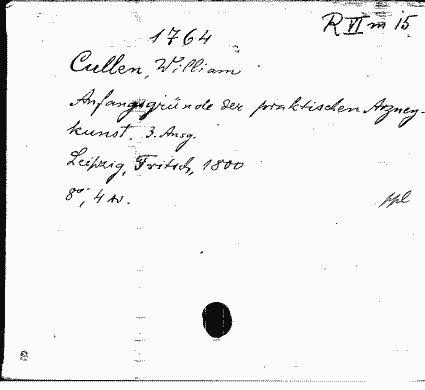 R VI m 15
1764
Cullen, William
Anfangsgründe der praktischen Arzney-
kunst. 3. Ausg.
Leipzig, Fritsch, 1800
8°, 4 Bv.
ppl